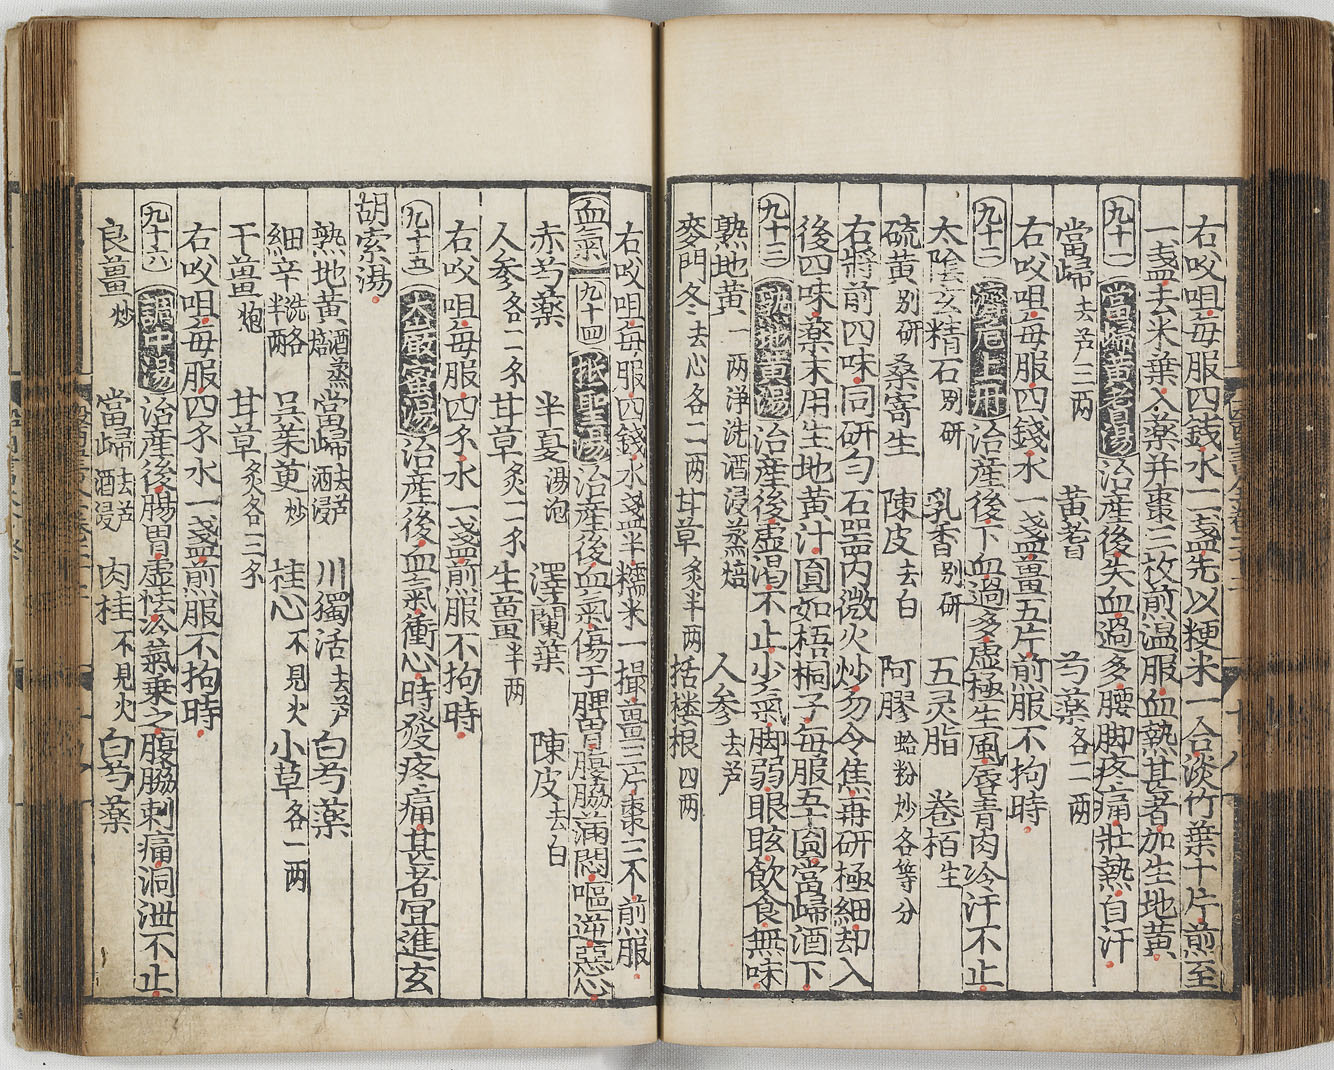 右㕮咀每服四錢水一盞先以粳米一合淡竹葉十片煎至
一盞去米葉入藥并棗三枚煎温服血熱甚者加生地黃
九十一 當歸黃耆湯 治產後失血過多腰脚疼痛壯熱自汗
當歸去芦三两 黃耆 芍藥各二两
右㕮咀每服四錢水一盞薑五片煎服不拘時
九十二 濟危上丹 治產後下血過多虛極生風唇青肉冷汗不止
太陰玄精石別研 乳香別研 五灵脂 卷栢生
硫黃別研 桑寄生 陳皮去白 阿膠蛤粉炒各等分
右將前四味同研勻石噐内微火炒勿令焦再研極細却入
後四味藥末用生地黃汁圓如梧桐子每服五十圓當歸酒下
九十三 熟地黃湯 治產後虛渴不止少氣脚弱眼眩飲食無味
熟地黃一两净洗酒浸蒸焙 人参去芦
麥門冬去心各二两 甘草炙半两 括楼根四两
右㕮咀每服四錢水盞半糯米一撮薑三片棗三不煎服
血氣 九十四 抵聖湯 治產後血氣傷于脾胃腹脇滿悶嘔逆惡心
赤芍藥 半夏湯泡 澤蘭葉 陳皮去白
人參各二分 甘草炙一分 生薑半两
右㕮咀每服四分水一盞煎服不拘時
九十五 大嚴蜜湯 治產後血氣衝心時發疼痛甚者宜進玄
胡索湯
熟地黃酒蒸焙 當歸去芦酒浸 川獨活去芦 白芍藥
細辛洗各半两 吳茱萸炒 桂心不見火 小草各一两
干薑炮 甘草炙各三分
右㕮咀每服四分水一盞煎服不拘時
九十六 調中湯 治產後腸胃虛怯冷氣乗之腹脇刺痛洞泄不止
良薑炒 當歸去芦酒浸 肉桂不見火 白芍藥